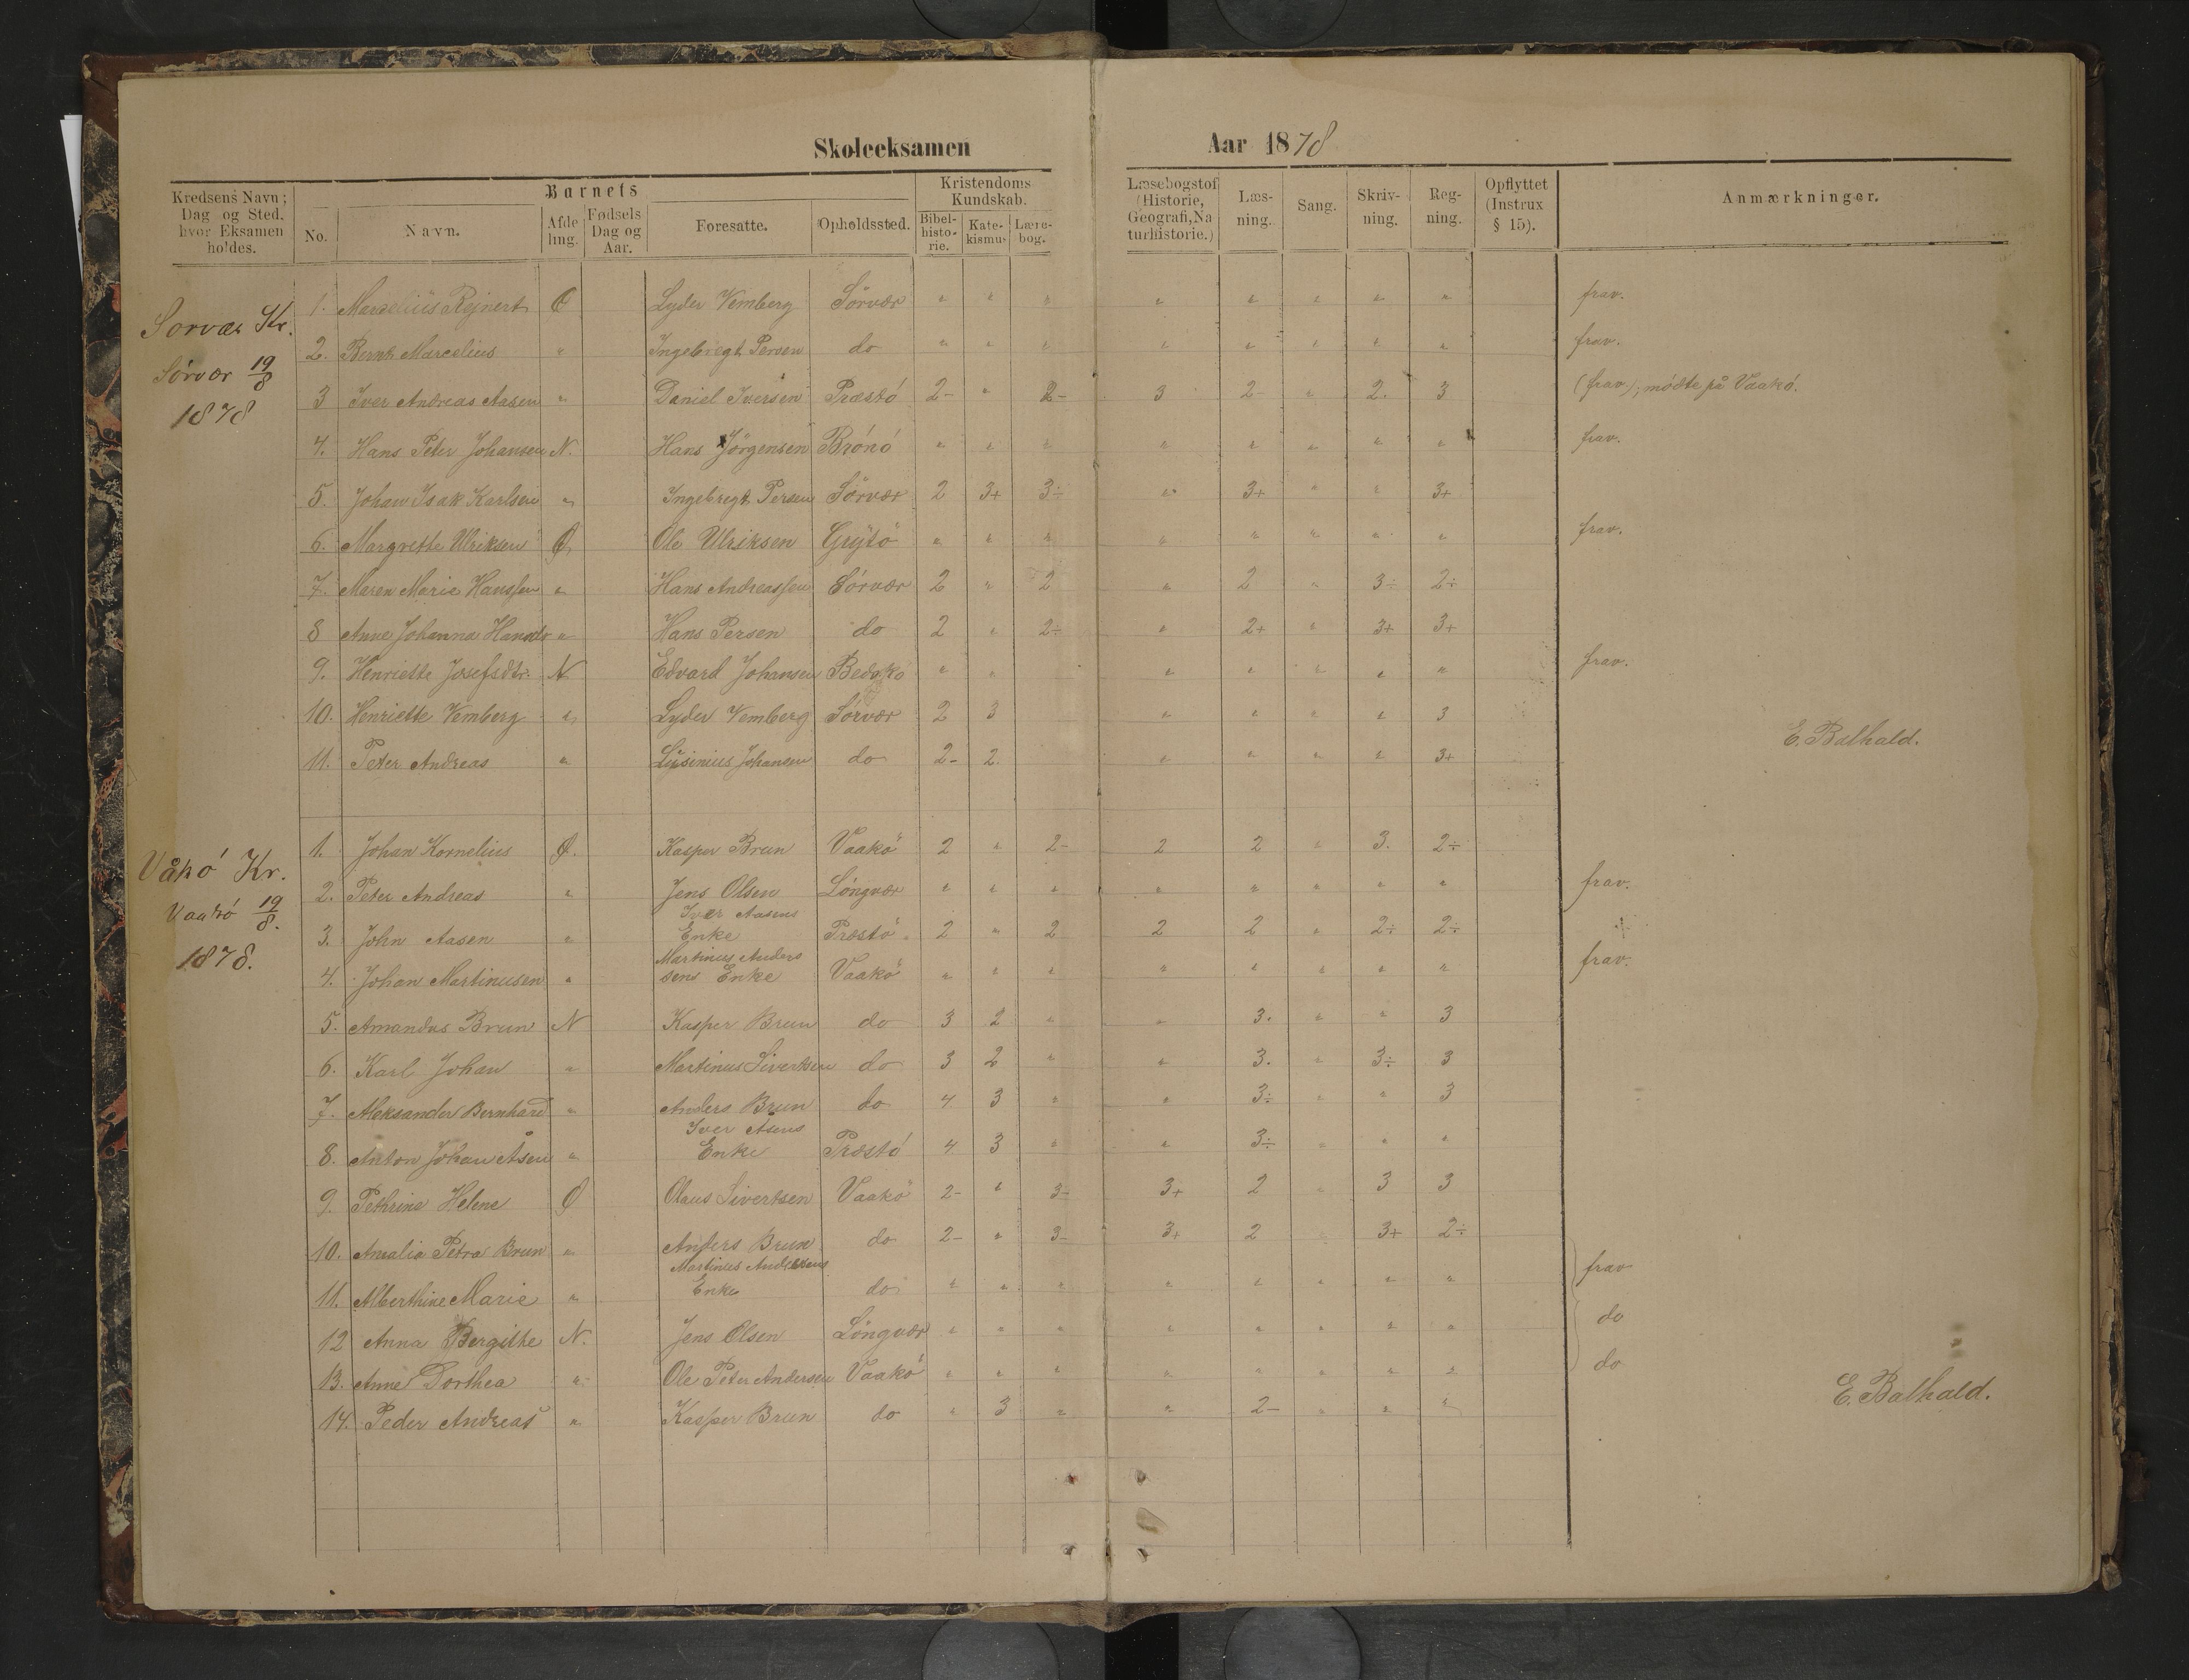 Skoleeksamen Aar 1878
Kredsens Navn; Dag og Sted, hvor Eksamen holdes. | Barnets | Kristendoms Kundskab. | Læsebogstof (Historie, Geografi, Naturhistorie.) | Læsning. | Sang. | Skrivning. | Regning. | Opflyttet (Instrux § 15). | Anmærkninger.
No. | Navn. | Afdeling. | Fødsels Dag og Aar. | Foresatte. | Opholdssted. | Bibelhistorie. | Katekismus | Lærebog.
Sørvær Kr.
Sørvær 19/8
1878
1. Marcelius Rejnert Ø Lyder Vemberg Sørvær " " " " " " " " frav.
2. Bernt Marcelius " Ingebrigt Persen do " " " " " " " " frav.
3 Iver Andreas Aasen " Daniel Iversen Præstø 2- " 2- 3 2- " 2. 3 (frav.); mødte på Vaakø.
4. Hans Peter Johansen N. Hans Jørgensen Brønø " " " " " " " " frav.
5. Johan Isak Karlsen " Ingebrigt Persen Sørvær 2 3+ 3÷ " 3+ " " 3+
6. Margrethe Ulriksen Ø Ole Ulriksen Grytø " " " " " " " " frav.
7. Maren Marie Hanssen " Hans Andreassen Sørvær 2 " 2 " 2 " 3÷ 2÷
8 Anne Johanna Hansdr " Hans Persen do 2 " 2÷ " 2+ " 3+ 3+
9. Henriette Josefsdtr. N Edvard Johansen " " " " " " " frav.
10. Henriette Vemberg " Lyder Vemberg Sørvær 2 3 " " " " 3
11. Peter Andreas " Johansen do 2- 2. " " " " 3+
E. Balhald.
Våkø Kr.
Vaakø 19/8.
1878.
1. Johan Kornelius Ø. Kasper Brun Vaakø 2 " 2- 2 2 " 3. 2÷
2. Peter Andreas " Jens Olsen Løngvær " " " " " " " " frav.
3. John Aasen " Iver Aasens Enke Præstø 2 " 2 2 2 " 2÷ 2÷
4. Johan Martinusen " Martinus Andersens Enke Vaakø " " " " " " " " frav.
5. Amandus Brun N Kasper Brun do 3 2 " " 3. " " 3
6. Karl Johan " Martinus Sivertsen do 3 2 " " 3. " 3÷ 3
7. Aleksander Bernhard " Anders Brun do 4 3 " " 3÷ " " 3
8. Anton Johan Åsen " Iver Asens Enke Præstø 4 3 " " 3÷ " " "
9. Pethrine Helene Ø Olaus Sivertsen Vaakø 2- " 3- 3+ 2 " 3 3
10. Amalia Petra Brun " Anders Brun do 2- " 3- 3+ 2 " 3+ 2÷
11. Alberthine Marie " Martinus Andersens Enke do " " " " " " " " frav
12 Anna Bergithe N. Jens Olsen Løngvær " " " " " " " " do
13. Anne Dorthea " Ole Peter Andersen Vaakø " " " " " " " " do
14. Peder Andreas " Kasper Brun do " 3 " " 2- " " "
E. Balhald.